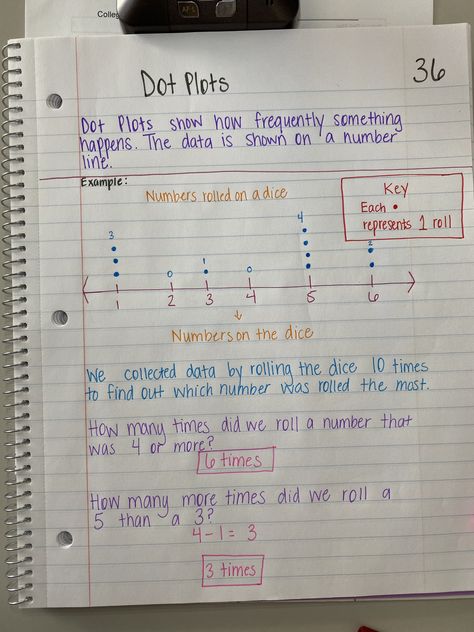 Colleg
AF-S
36
Dot Plots
Dot Plots show how frequently something
happens. The data is shown on a number
line.
Example:
Numbers rolled on a dice
Key
Each •
represents 1 roll
3 0 1 0 4 2
1 2 3 4 5 6
↓
Numbers on the dice
We collected data by rolling the dice 10 times
to find out which number was rolled the most.
How many times did we roll a number that
was 4 or more?
6 times
How many more times did we roll a
5 than a 3?
4-1= 3
3 times